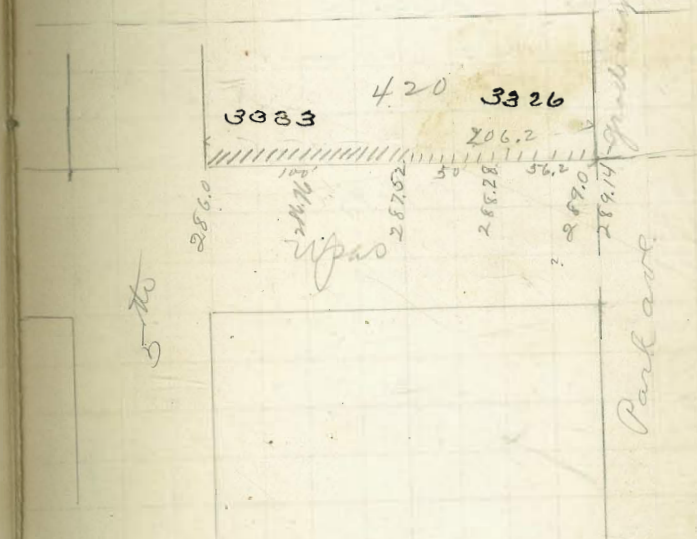 420
3333
3326
206.2
100
50
56.2
286.0
286.76
287.52
288.28
289.0
289.14
Upas
?
5th
Park ave.